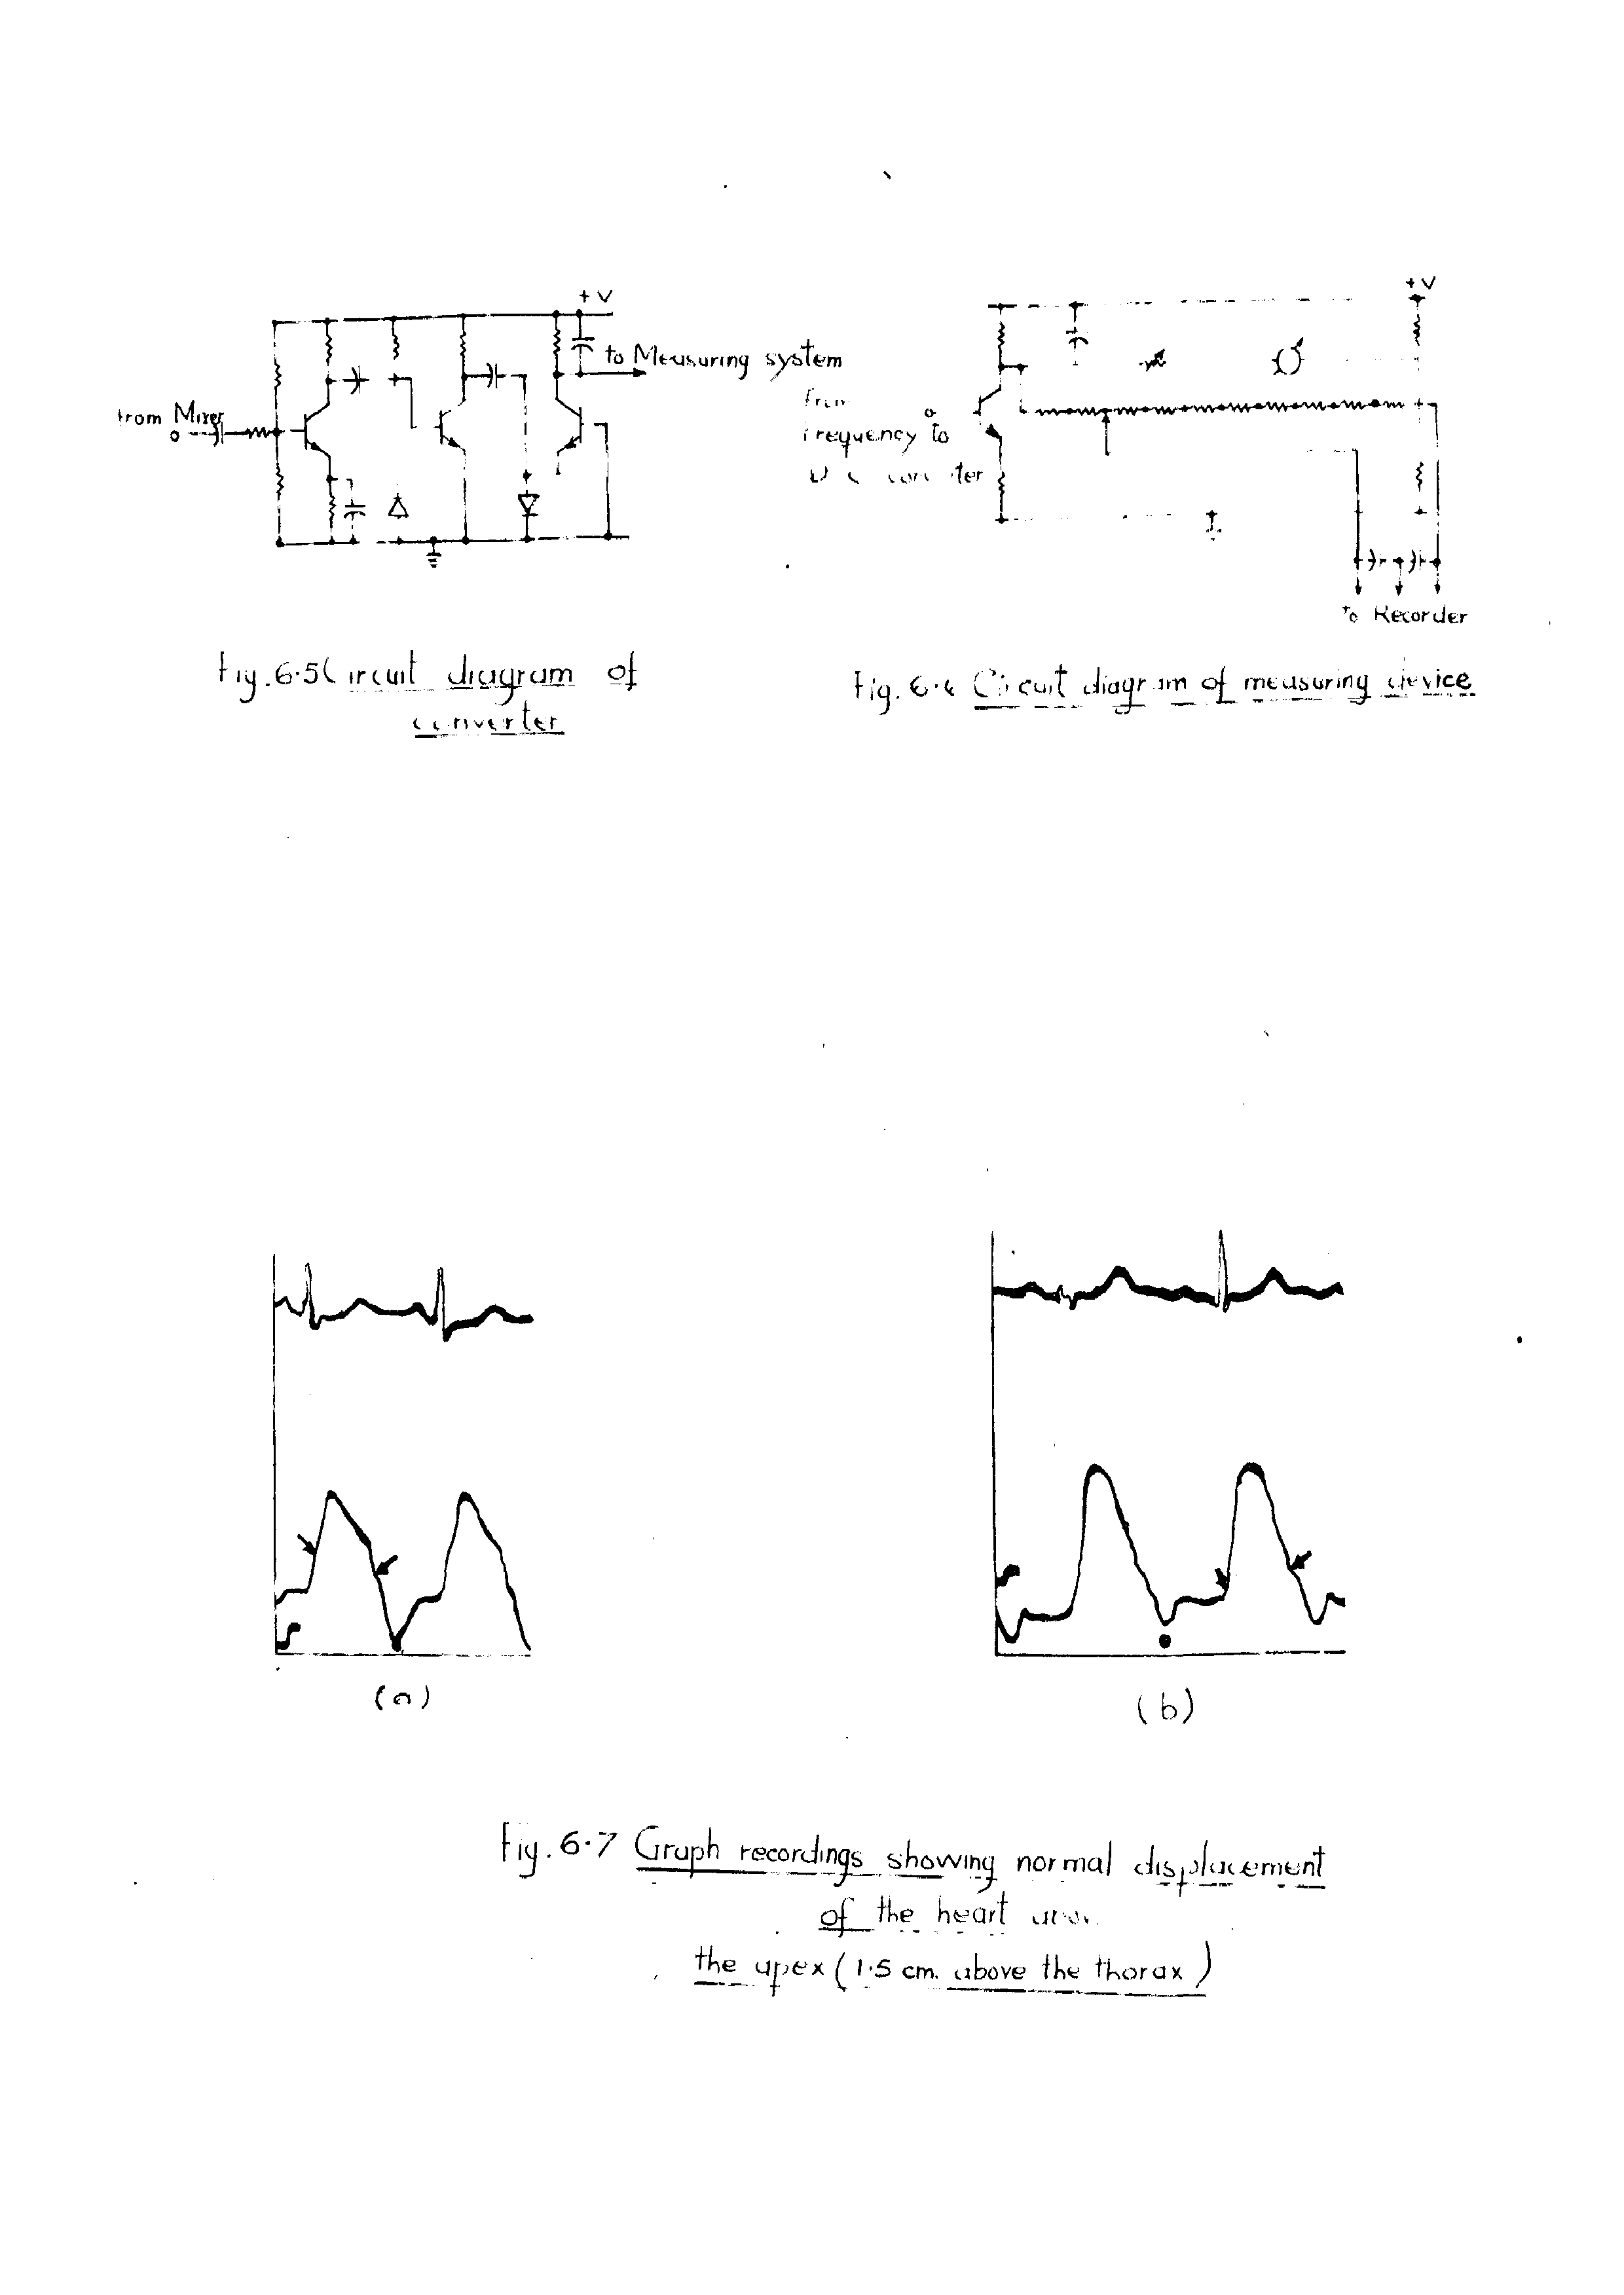 + V
to Measuring system
from Mixer
Fig. 6.5 Circuit diagram of
converter
+ V
from
frequency to
D C converter
to Recorder
Fig. 6. Circuit diagram of measuring device
(a)
(b)
Fig. 6.7 Graph recordings showing normal displacement
of the heart
the apex (1.5 cm. above the thorax)